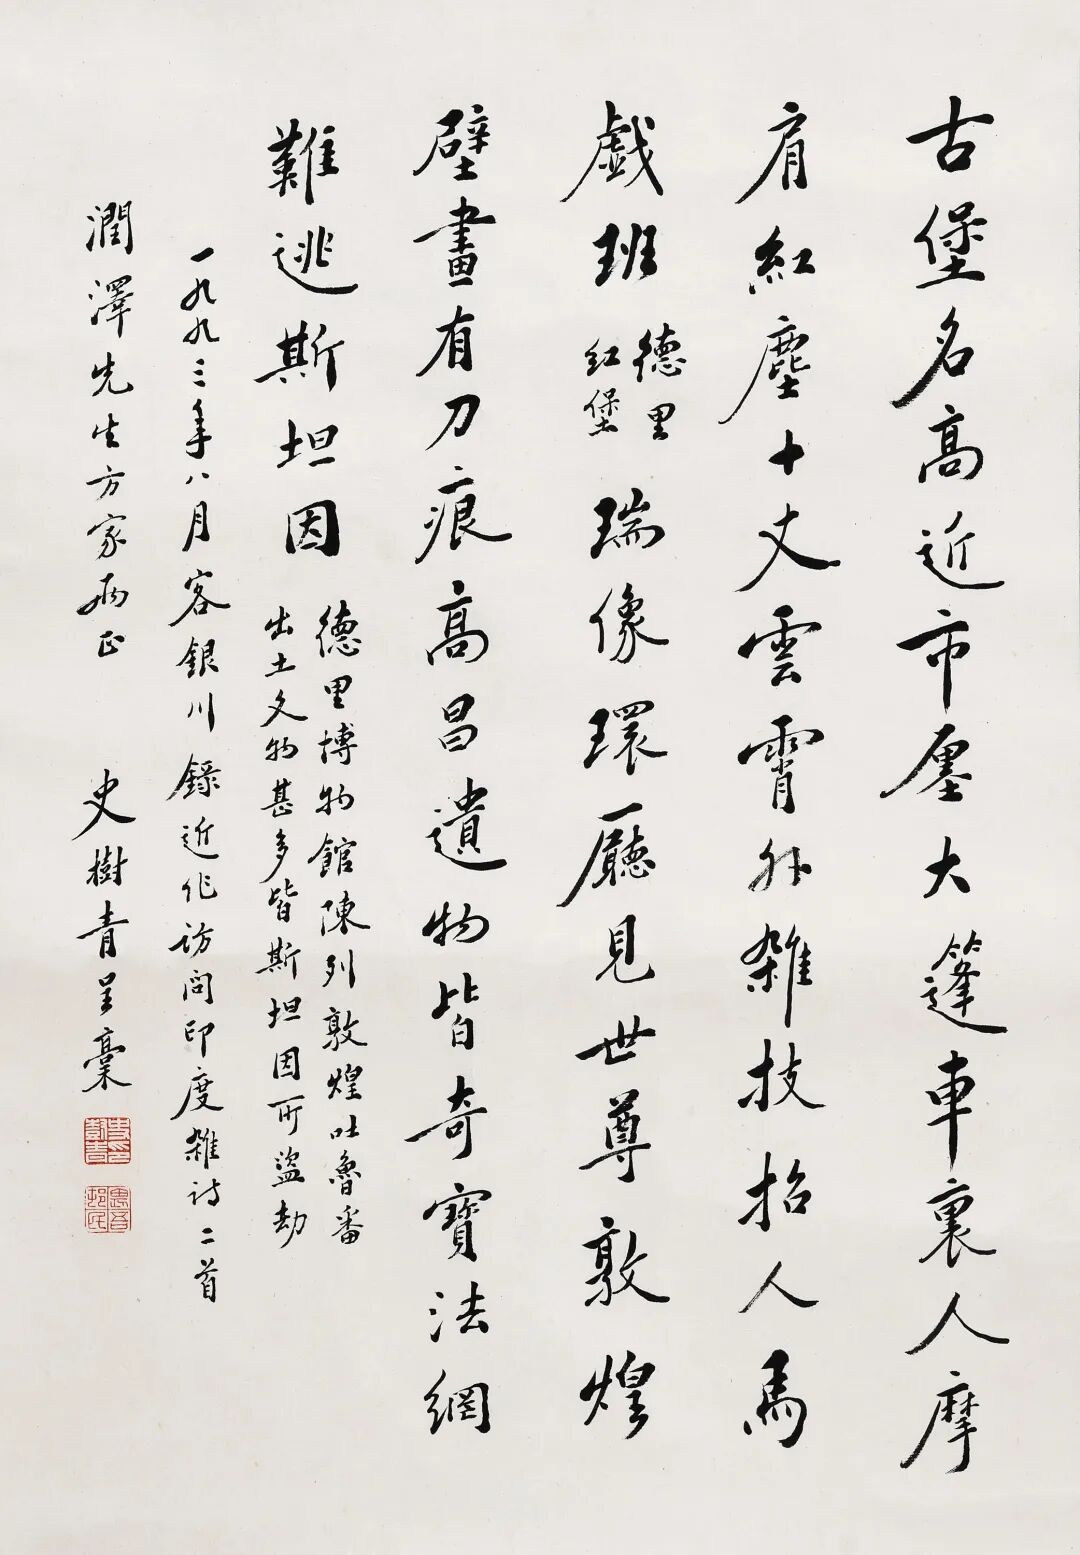 古堡名高近市廛大篷車裏人摩
肩紅塵十丈雲霄外雜技招人馬
戲班
德里
紅堡
瑞像環廳見世尊敦煌
壁畫有刀痕高昌遺物皆奇寶法網
難逃斯坦因
德里博物館陳列敦煌吐魯番
出土文物甚多皆斯坦因所盜劫
一九九三年八月客銀川錄近作訪問印度雜詩二首
潤澤先生方家兩正
史樹青呈稾